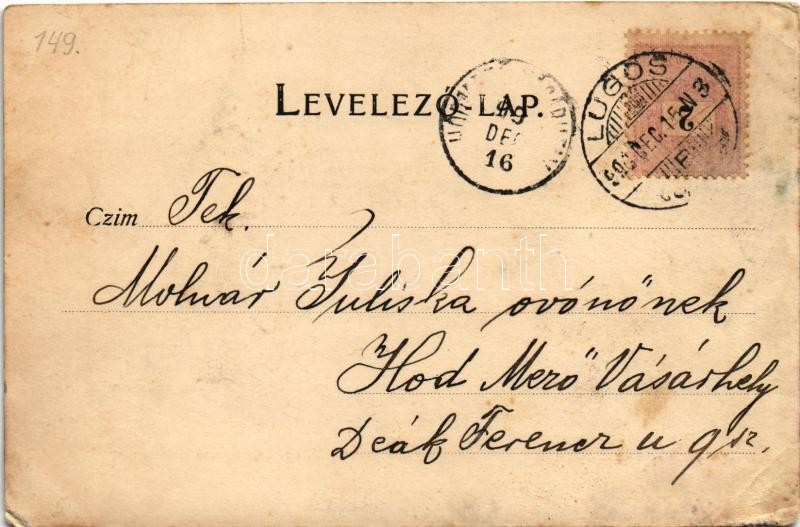 149.
LEVELEZŐ LAP.
99
DEC
16
LUGOS
2
Czim Tek.
Molnár Juliska ovónőnek
Hod Mező Vásárhely
Deák Ferencz u 9 sz.
darabanth